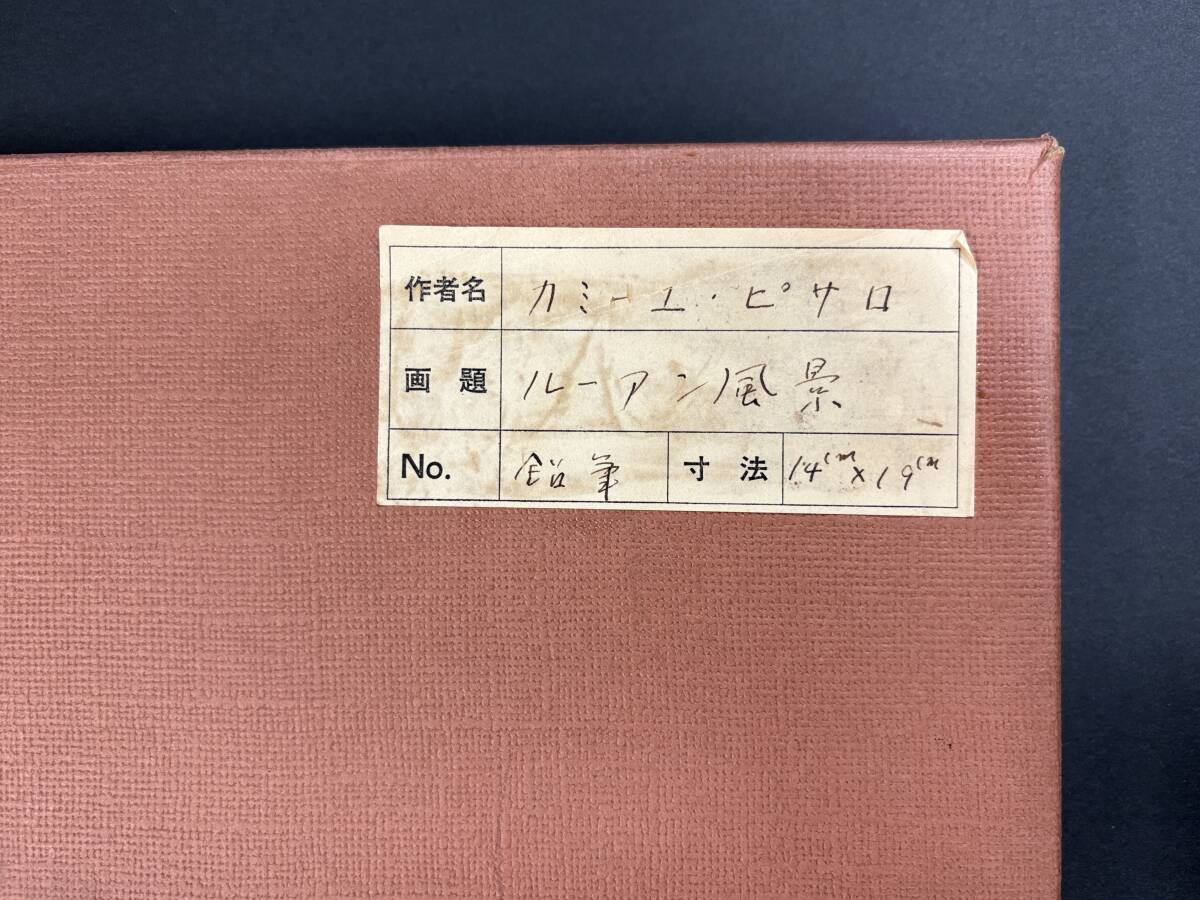 作者名 カミーユ・ピサロ
画題 ルーアン風景
No. 鉛筆 寸法 14cm×19cm